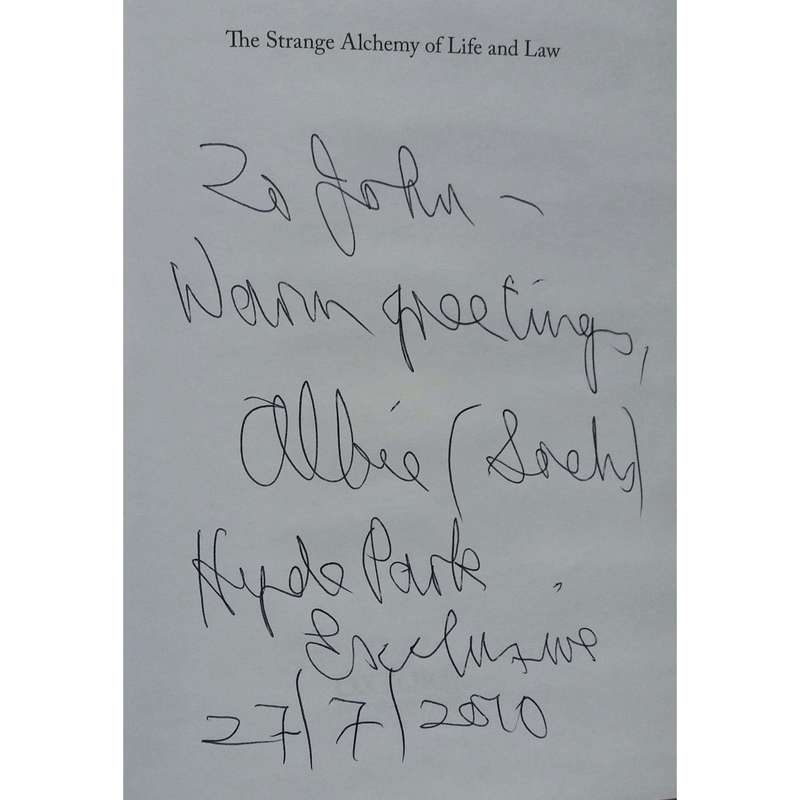 The Strange Alchemy of Life and Law
To John –
Warm greetings,
Albie (Sachs)
Hyde Park
Exclusive
27/7/2010